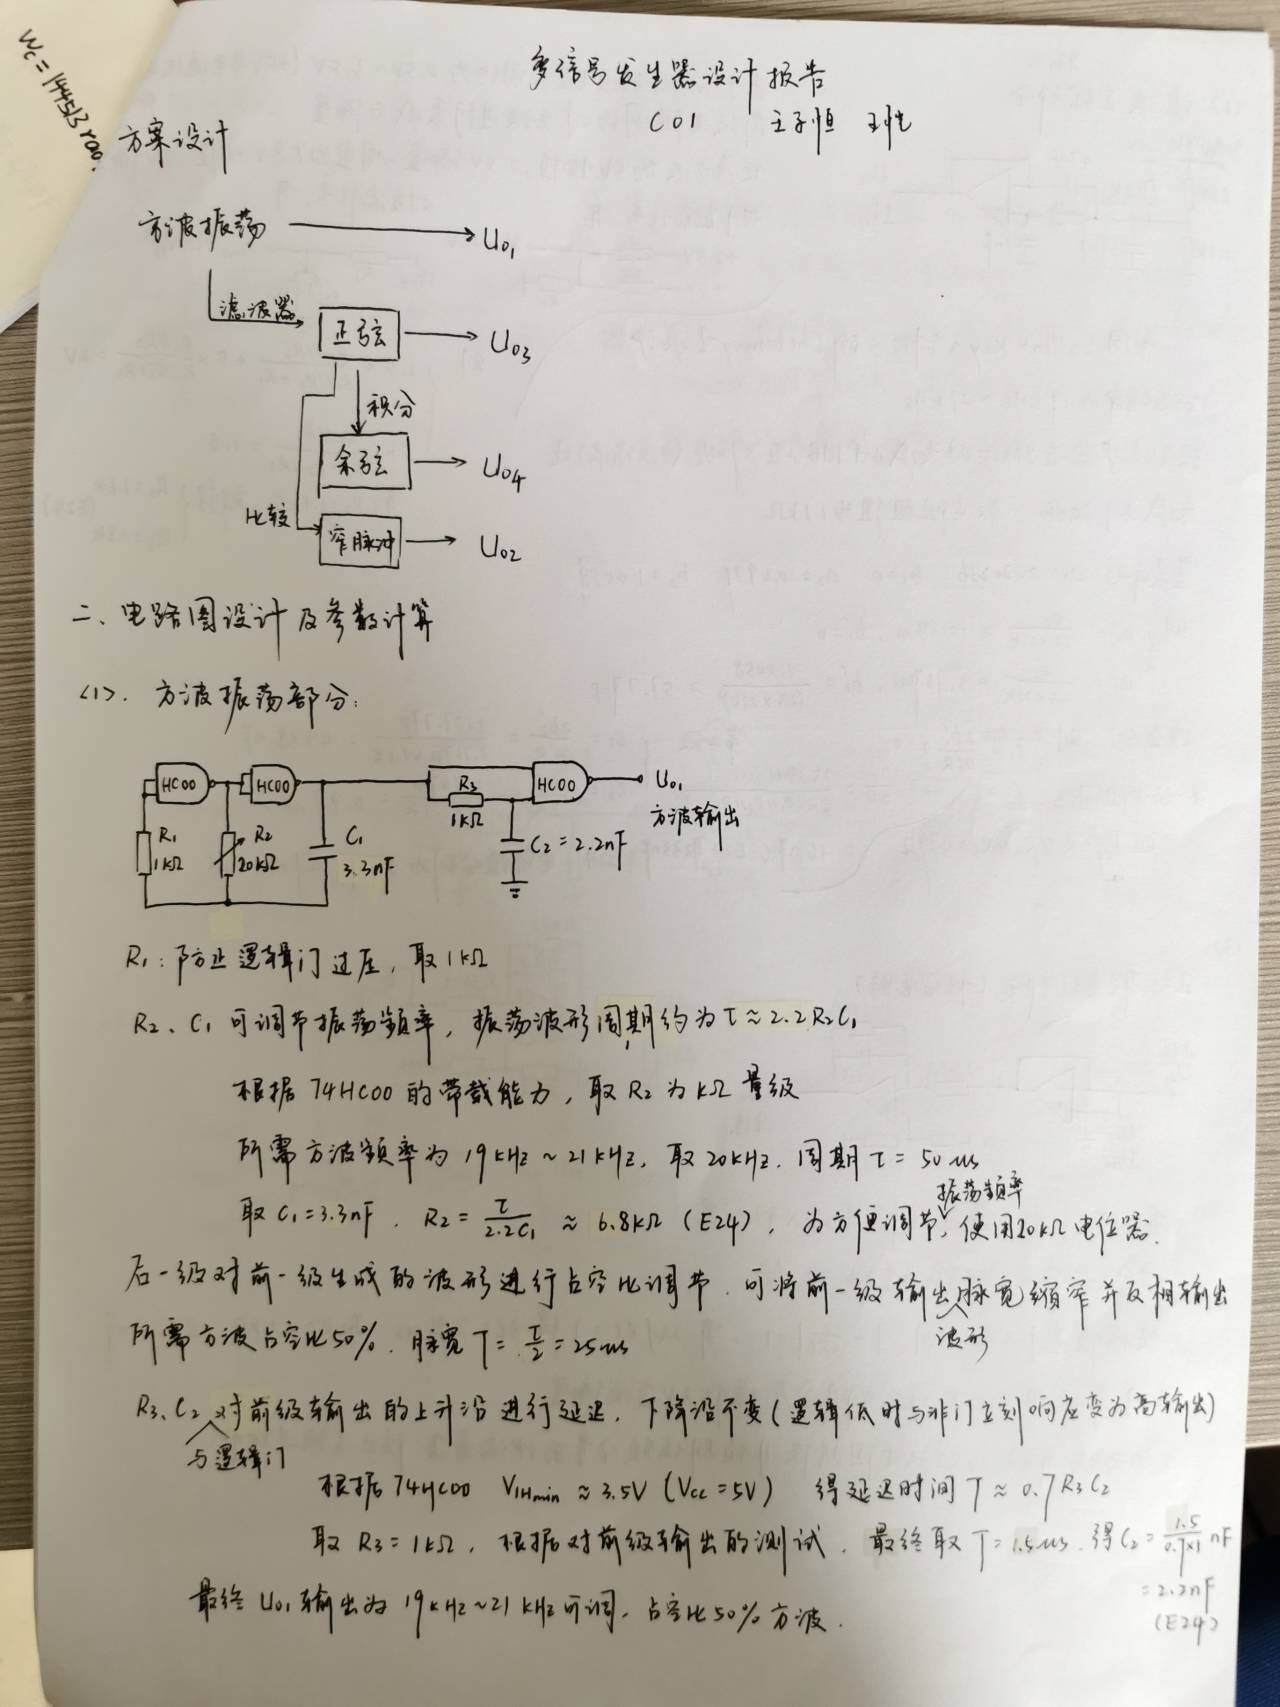 Wc=144513 rad.
多信号发生器设计报告
C01 王子恒
方案设计
方波振荡 Uo1
滤波器
正弦 Uo3
积分
余弦 Uo4
比较
窄脉冲 Uo2
二、电路图设计及参数计算
(1). 方波振荡部分:
HC00 HC00 R3 HC00 Uo1
1kΩ 方波输出
R1 R2 C1 C2=2.2nF
1kΩ 20kΩ 3.3nF
R1:防止逻辑门过压,取1kΩ
R2、C1可调节振荡频率,振荡波形周期约为τ≈2.2R2C1
根据74HC00的带载能力,取R2为kΩ量级
所需方波频率为19kHz~21kHz,取20kHz,周期τ=50us
取C1=3.3nF,R2=τ/2.2C1≈6.8kΩ(E24),为方便调节振荡频率,使用20kΩ电位器.
后一级对前一级生成的波形进行占空比调节,可将前一级输出波形脉宽缩窄并反相输出
所需方波占空比50%,脉宽T=τ/2=25us
R3、C2与逻辑门对前级输出的上升沿进行延迟,下降沿不变(逻辑低时与非门立刻响应变为高输出)
根据74HC00 VIHmin≈3.5V(Vcc=5V) 得延迟时间T≈0.7R3C2
取R3=1kΩ,根据对前级输出的测试,最终取T=1.5us,得C2=1.5/0.7×1 nF
=2.2nF
(E24)
最终Uo1输出为19kHz~21kHz可调,占空比50%方波.